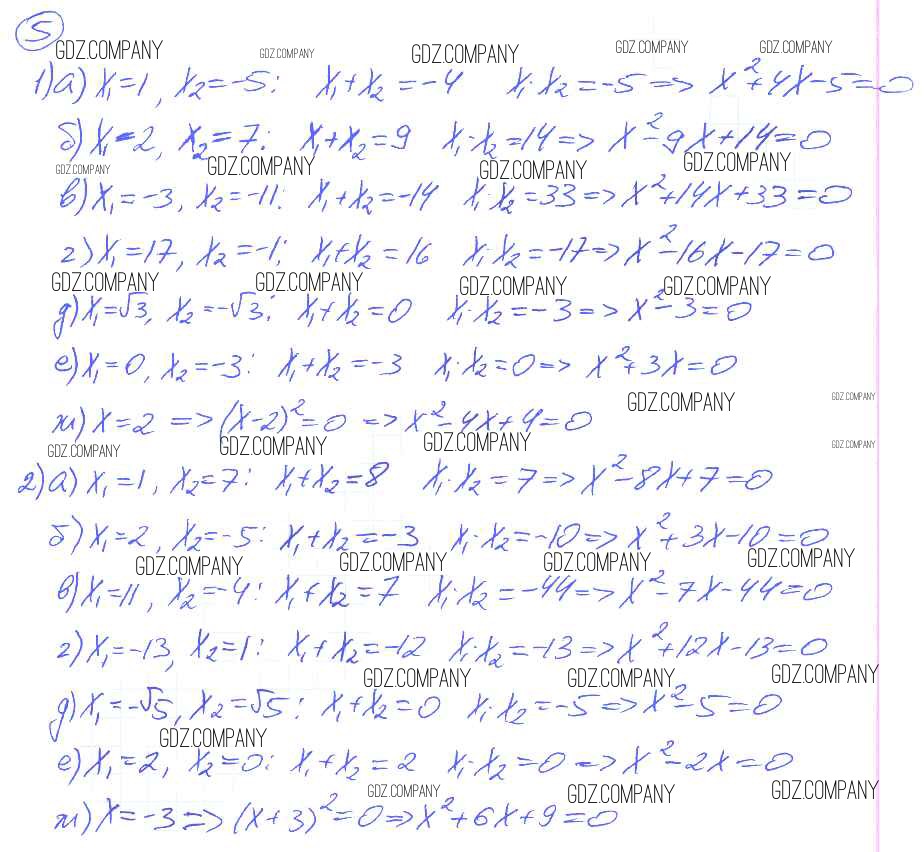 5
GDZ.COMPANY GDZ.COMPANY GDZ.COMPANY GDZ.COMPANY GDZ.COMPANY
1) а) x₁=1, x₂=-5: x₁+x₂=-4 x₁·x₂=-5=> x²+4x-5=0
б) x₁=2, x₂=7: x₁+x₂=9 x₁·x₂=14=> x²-9x+14=0
GDZ.COMPANY GDZ.COMPANY GDZ.COMPANY GDZ.COMPANY
в) x₁=-3, x₂=-11: x₁+x₂=-14 x₁·x₂=33=> x²+14x+33=0
г) x₁=17, x₂=-1; x₁+x₂=16 x₁·x₂=-17=> x²-16x-17=0
GDZ.COMPANY GDZ.COMPANY GDZ.COMPANY GDZ.COMPANY
д) x₁=√3, x₂=-√3: x₁+x₂=0 x₁·x₂=-3=> x²-3=0
е) x₁=0, x₂=-3: x₁+x₂=-3 x₁·x₂=0=> x²+3x=0
GDZ.COMPANY GDZ.COMPANY
ж) x=2 => (x-2)²=0 => x²-4x+4=0
GDZ.COMPANY GDZ.COMPANY GDZ.COMPANY GDZ.COMPANY
2) а) x₁=1, x₂=7: x₁+x₂=8 x₁·x₂=7=> x²-8x+7=0
б) x₁=2, x₂=-5: x₁+x₂=-3 x₁·x₂=-10=> x²+3x-10=0
GDZ.COMPANY GDZ.COMPANY GDZ.COMPANY GDZ.COMPANY
в) x₁=11, x₂=-4: x₁+x₂=7 x₁·x₂=-44=> x²-7x-44=0
г) x₁=-13, x₂=1: x₁+x₂=-12 x₁·x₂=-13=> x²+12x-13=0
GDZ.COMPANY GDZ.COMPANY GDZ.COMPANY
д) x₁=-√5, x₂=√5: x₁+x₂=0 x₁·x₂=-5=> x²-5=0
GDZ.COMPANY
е) x₁=2, x₂=0: x₁+x₂=2 x₁·x₂=0 => x²-2x=0
GDZ.COMPANY GDZ.COMPANY GDZ.COMPANY
ж) x=-3=> (x+3)²=0=> x²+6x+9=0